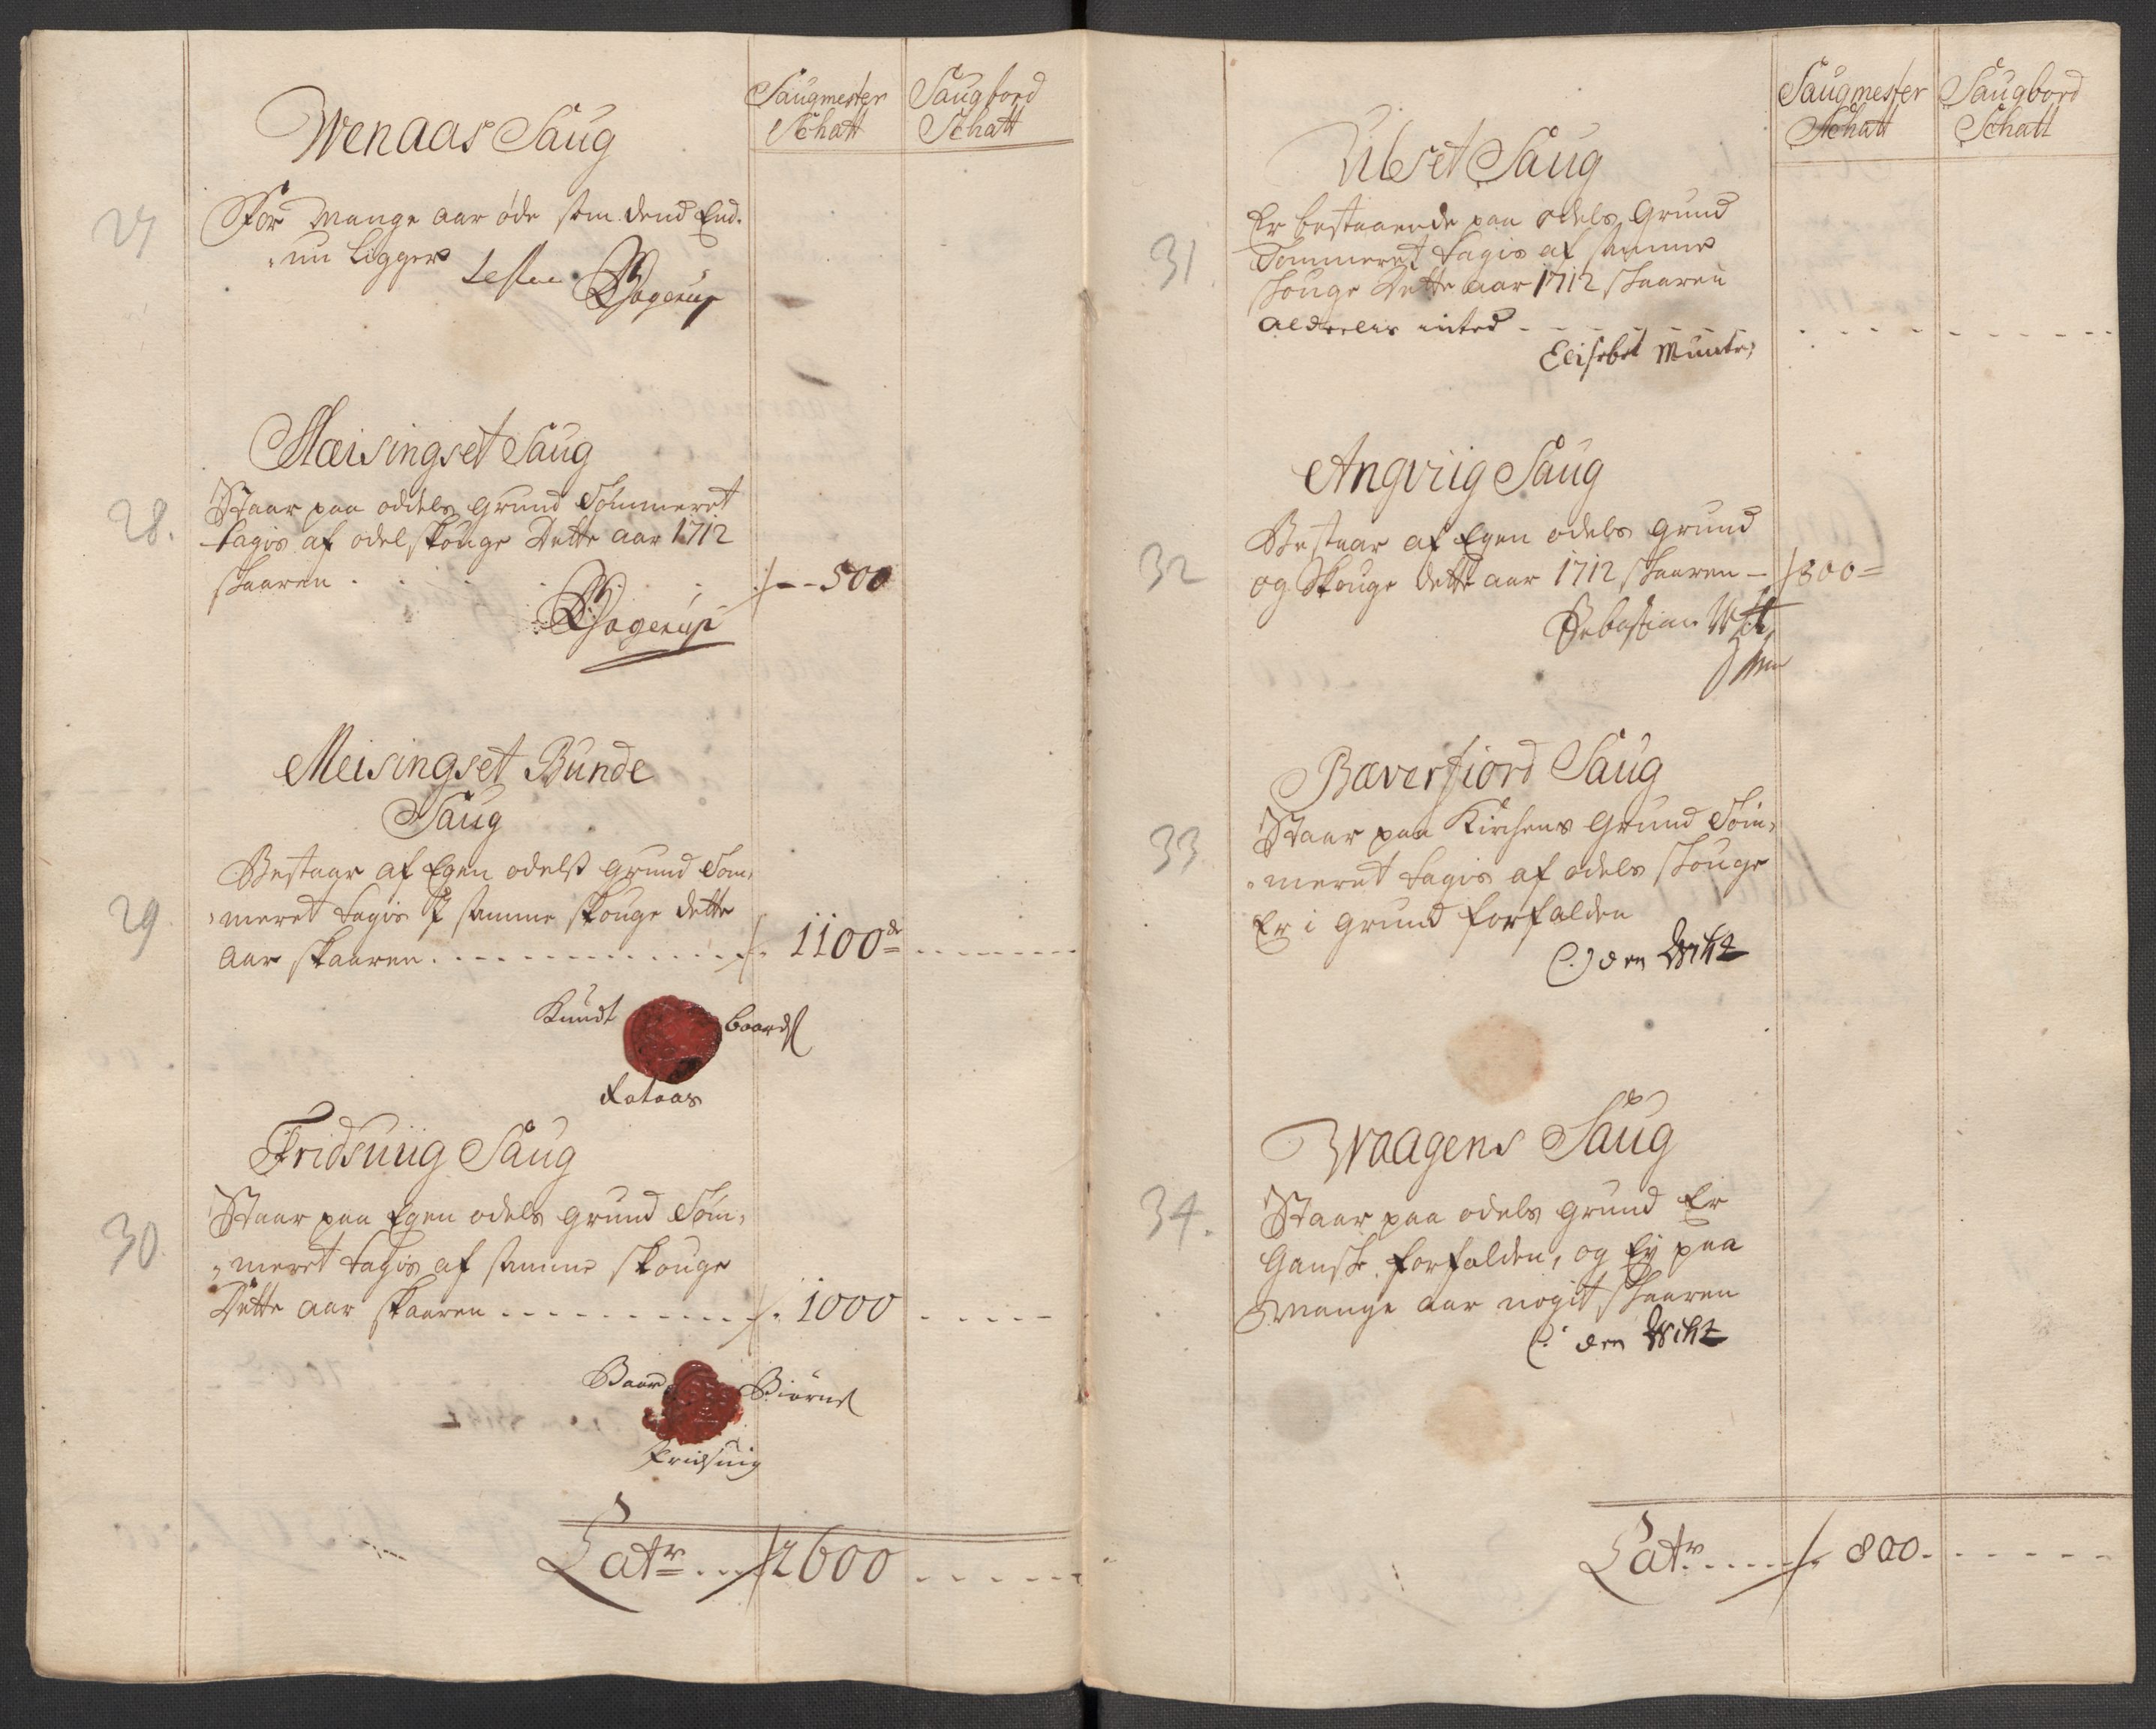 Saugmester Saugbord
Schatt Schatt
Wenaas Saug
27
For mange aar øde som dend End-
nu ligger
Hagerup
Mæisingset Saug
28.
Staar paa oddels grund Tømmeret
tagis af odel skouge Dette aar 1712
skaaren . . . 500
Hagerup
Meisingset Bunde
Saug
29.
Bestaar af Egen odelß grund Tøm-
meret tagis af samme skouge dette
aar skaaren . . . 1100 de
Knudt baardß
Fridsuiig Saug
30.
Staar paa Egen odels grund Tøm-
meret tagis af samme skouge
Dette aar skaaren . . . 1000
Baar Biørnß
Fridsuig
Latr . . . 2600
Saugmester Saugbord
Schatt Schatt
Ulset Saug
31.
Er bestaaende paa odels Grund
Tømmeret tagis af samme
skouge Dette aar 1712 skaaren
aldeelis inted
Elisebet Munte
Angviig Saug
32
Bestaar af Egen odels grund
og Skouge dette aar 1712 skaaren — 800
Sebastian
Bæverfiord Saug
33.
Staar paa Kirchens Grund Tøm-
meret tagis af odels skouge
Er i grund forfalden
C: von Wiht
Waagens Saug
34.
Staar paa odels grund Er
Ganske forfalden, og Ey paa
mange aar nogit skaaren
C: von Wiht
Latr . . . 800